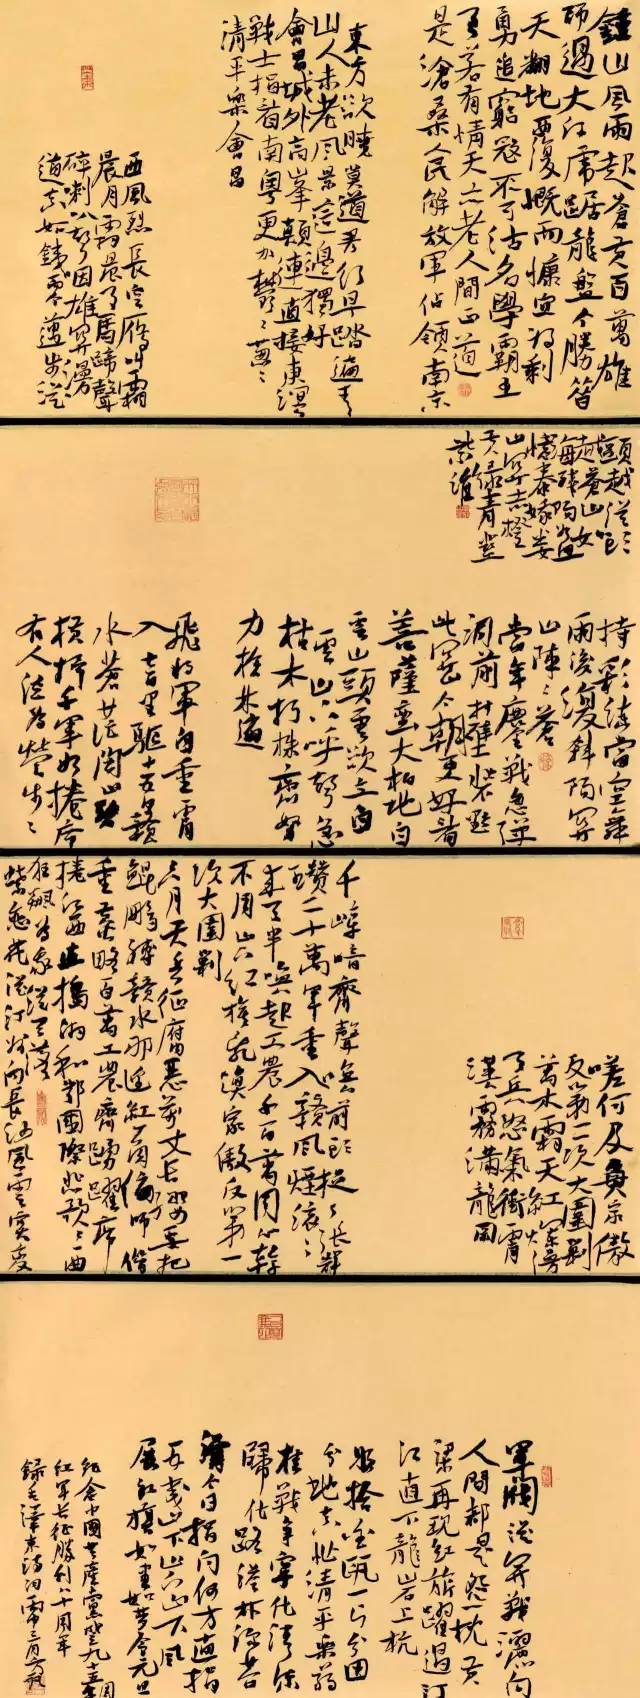 鍾山風雨起蒼黃百萬雄
師過大江虎踞龍盤今勝昔
天翻地覆慨而慷宜將剩
勇追窮寇不可沽名學霸王
天若有情天亦老人間正道
是滄桑人民解放軍佔領南京
東方欲曉莫道君行早踏遍青
山人未老風景這邊獨好
會昌城外高峯顛連直接東溟
戰士指看南粵更加鬱〻蔥〻
清平樂會昌
西風烈長空雁叫霜
晨月霜晨月馬蹄聲
碎喇叭聲咽雄關漫
道真如鐵而今邁步從
頭越從頭
越蒼山如
海殘陽如血
憶秦娥婁
山關赤橙
黃綠青藍
紫誰
持彩練當空舞
雨後復斜陽關
山陣〻蒼
當年鏖戰急彈
洞前村壁裝點
此關今朝更好看
菩薩蠻大柏地白
雲山頭雲欲立白
雲山下呼聲急
枯木朽株齊努
力槍林逼
飛將軍自重霄
入七百里驅十五日贛
水蒼茫閩山碧
橫掃千軍如捲席
有人泣為營步〻
嗟何及漁家傲
反第二次大圍剿
萬木霜天紅爛漫
天兵怒氣衝霄
漢霧滿龍岡
千嶂暗齊聲喚前頭捉了張輝
瓚二十萬軍重入贛風煙滾〻
來天半喚起工農千百萬同心幹
不周山下紅旗亂漁家傲反第一
次大圍剿
六月天兵征腐惡萬丈長纓要把
鯤鵬縛贛水那邊紅一角偏師借
重黃公略百萬工農齊踴躍席
捲江西直搗湘和鄂國際悲歌〻一曲
狂飆為我從天落
蝶戀花從汀州向長沙風雲突變
軍閥重開戰灑向
人間都是怨一枕黃
粱再現紅旗躍過汀
江直下龍岩上杭
收拾金甌一片分田
分地真忙清平樂蔣
桂戰爭寧化清流
歸化路隘林深苔
滑今日指向何方直指
武夷山下山下山下風
展紅旗如畫如夢令元旦
紀念中國共產黨誕生九十五周年
紅軍長征勝利八十周年
錄毛澤東詩詞